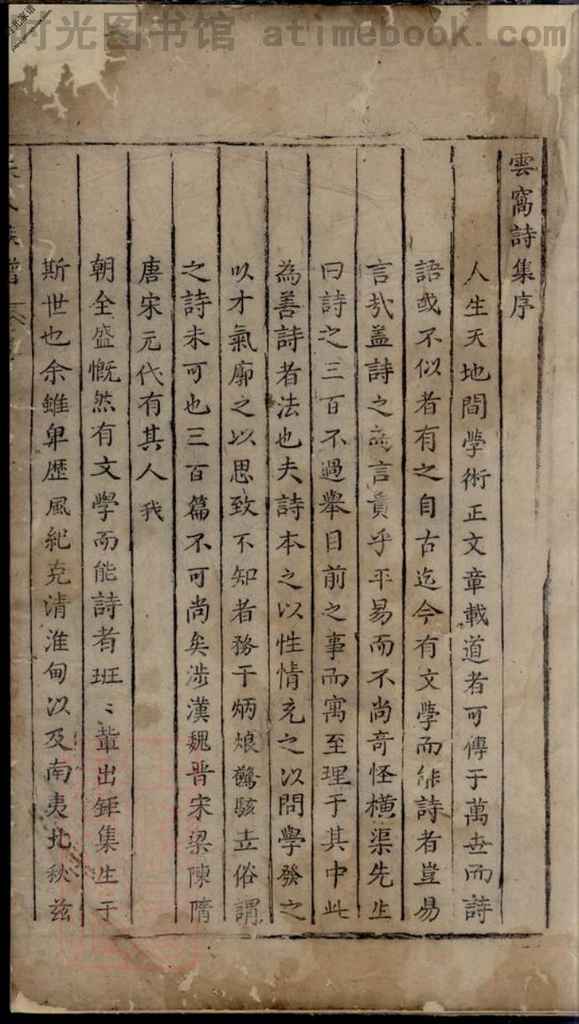 时光图书馆 atimebook.com
雲窩詩集序
人生天地間學術正文章載道者可傳于萬世而詩
語或不似者有之自古迄今有文學而能詩者豈易
言哉盖詩之言貴乎平易而不尚奇怪橫渠先生
曰詩之三百不過舉目前之事而寓至理于其中此
為善詩者法也夫詩本之以性情充之以問學發之
以才氣廓之以思致不知者務于炳烺驚駭立俗謂
之詩未可也三百篇不可尚矣涉漢魏晋宋梁陳隋
唐宋元代有其人我
朝全盛慨然有文學而能詩者班〻輩出鉅集生于
斯世也余雖卑歷風紀克清淮甸以及南夷北秋兹